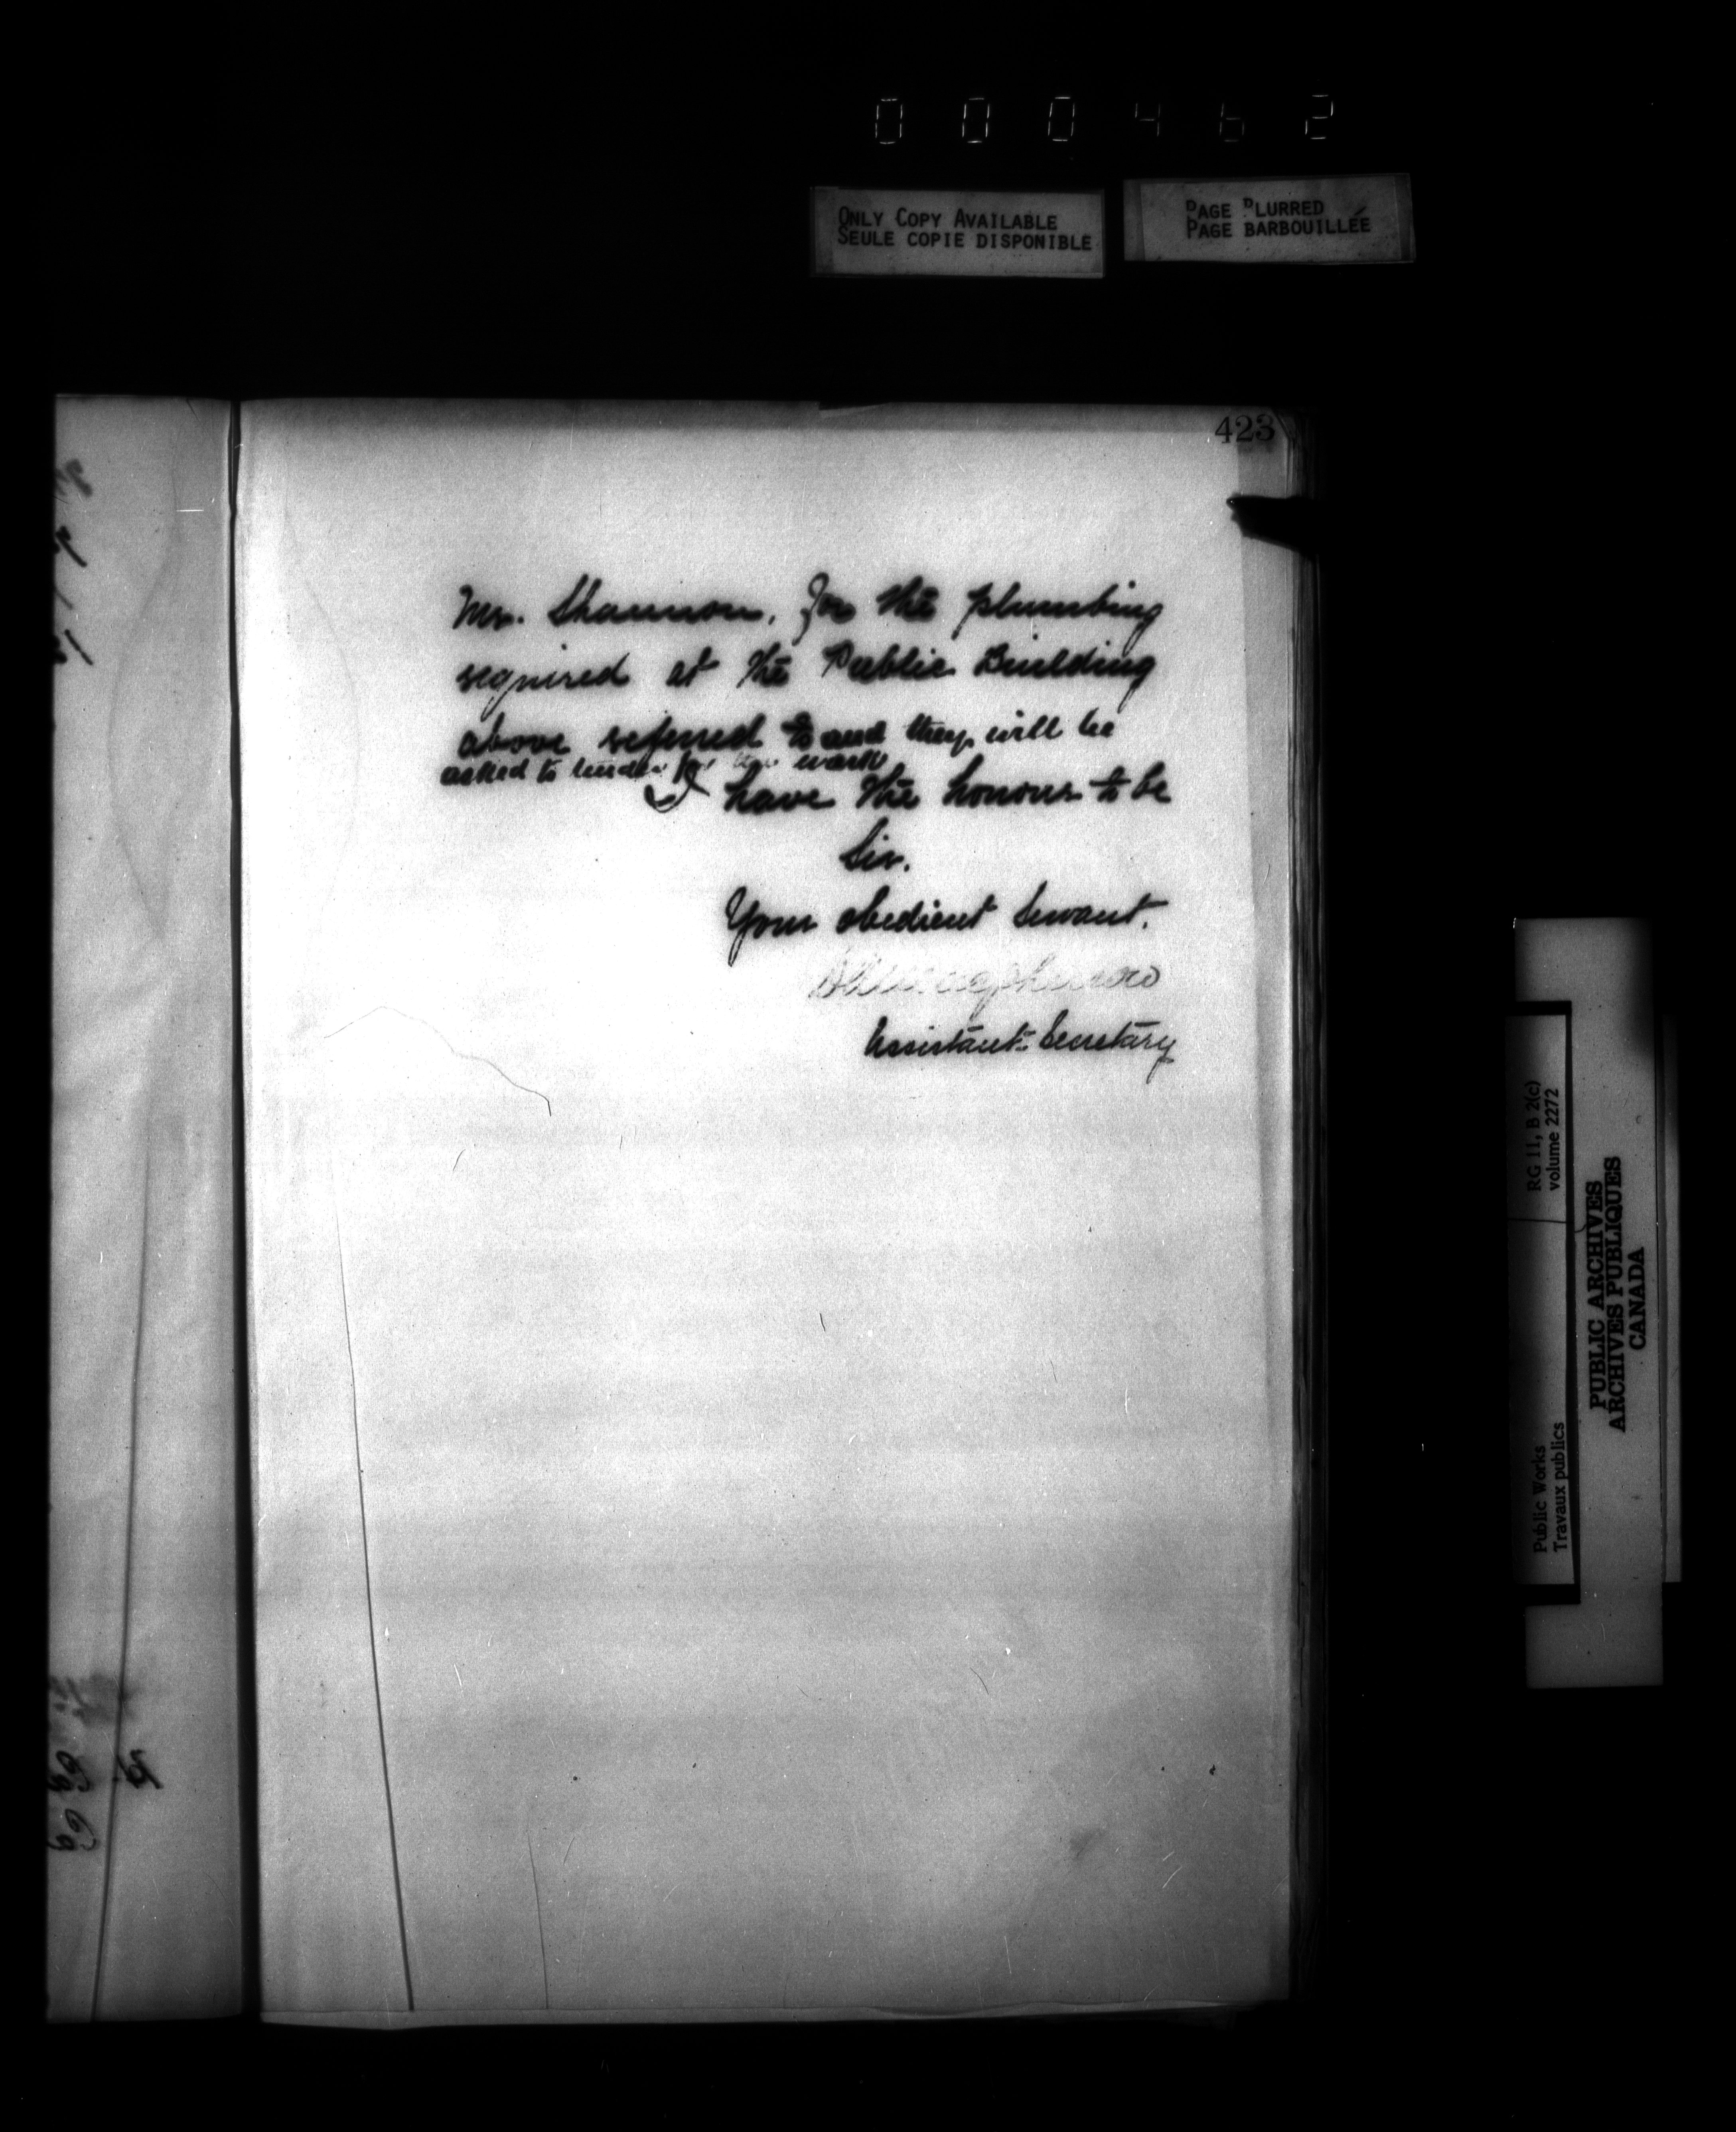 000462
ONLY COPY AVAILABLE
SEULE COPIE DISPONIBLE
PAGE BLURRED
PAGE BARBOUILLÉE
423
Mr. Shannon, for the plumbing
required at the Public Building
above referred to and they will be
asked to tender for the work
I have the honour to be
Sir.
Your obedient Servant.
Assistant-Secretary
RG 11, B 2(c)
volume 2272
Public Works
Travaux publics
PUBLIC ARCHIVES
ARCHIVES PUBLIQUES
CANADA